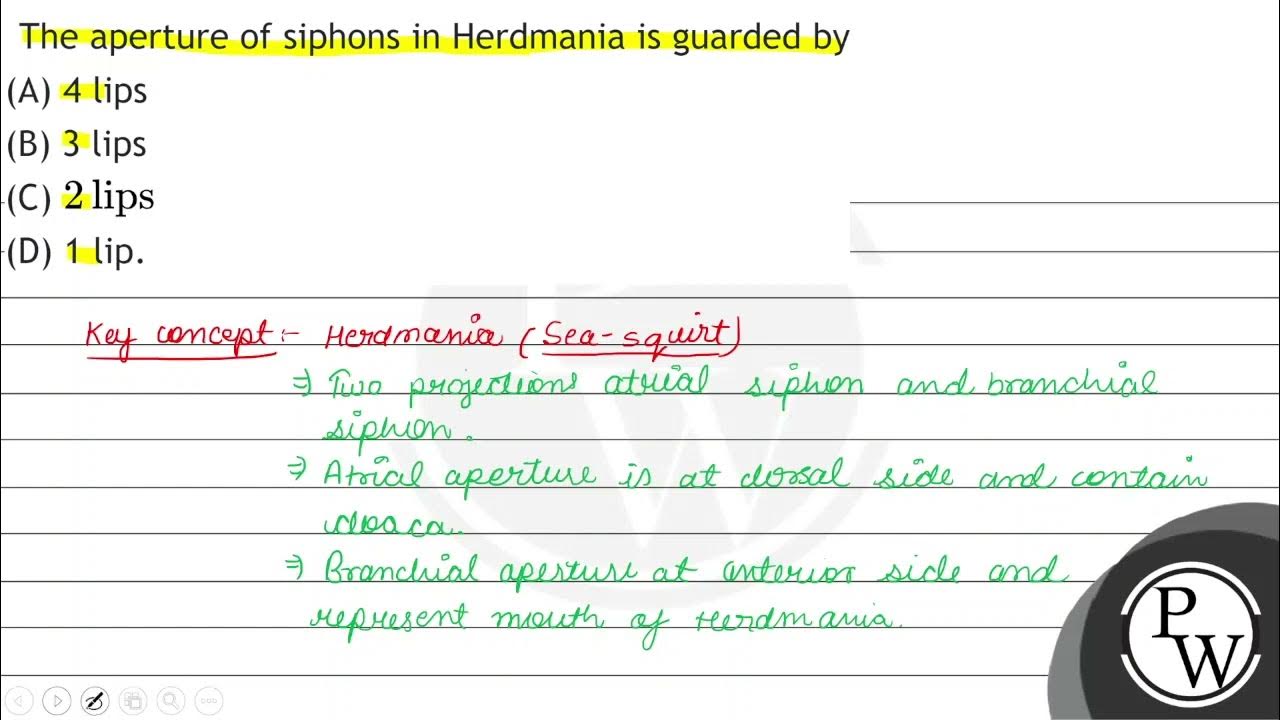 The aperture of siphons in Herdmania is guarded by
(A) 4 lips
(B) 3 lips
(C) 2 lips
(D) 1 lip.
Key concept:- Herdmania (Sea-squirt)
⇒ Two projections atrial siphon and branchial
siphon.
⇒ Atrial aperture is at dorsal side and contain
cloaca.
⇒ Branchial aperture at anterior side and
represent mouth of Herdmania.
P
W